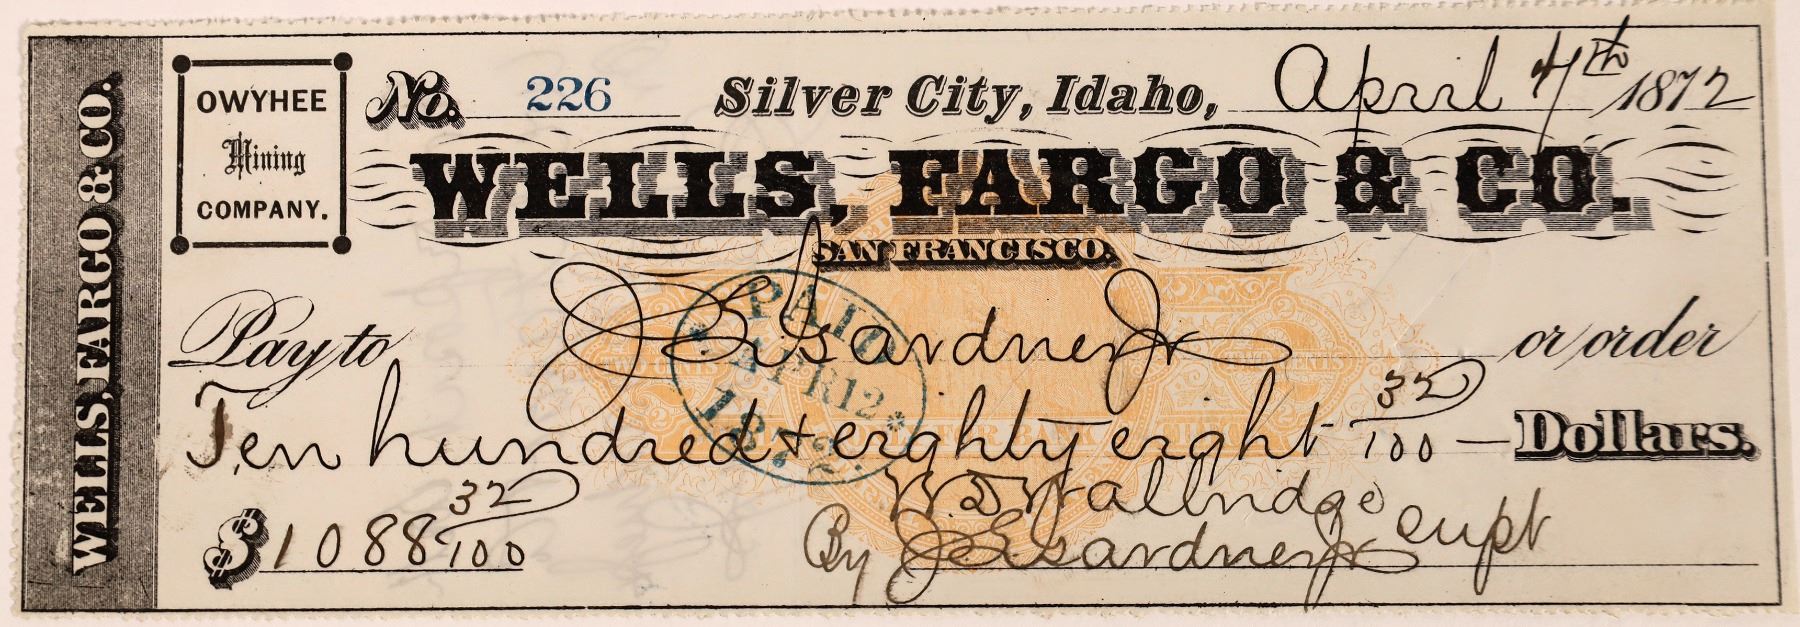 WELLS, FARGO & CO.
OWYHEE
Mining
COMPANY.
No. 226 Silver City, Idaho, April 4th 1872
WELLS, FARGO & CO.
SAN FRANCISCO.
Pay to J E Gardner Jr or order
Ten hundred & eighty eight 32/100 — Dollars.
PAID
APR 12
1872
TWO CENTS TWO CENTS
$1088 32/100
W. D. Wallbridge supt
By J E Gardner Jr